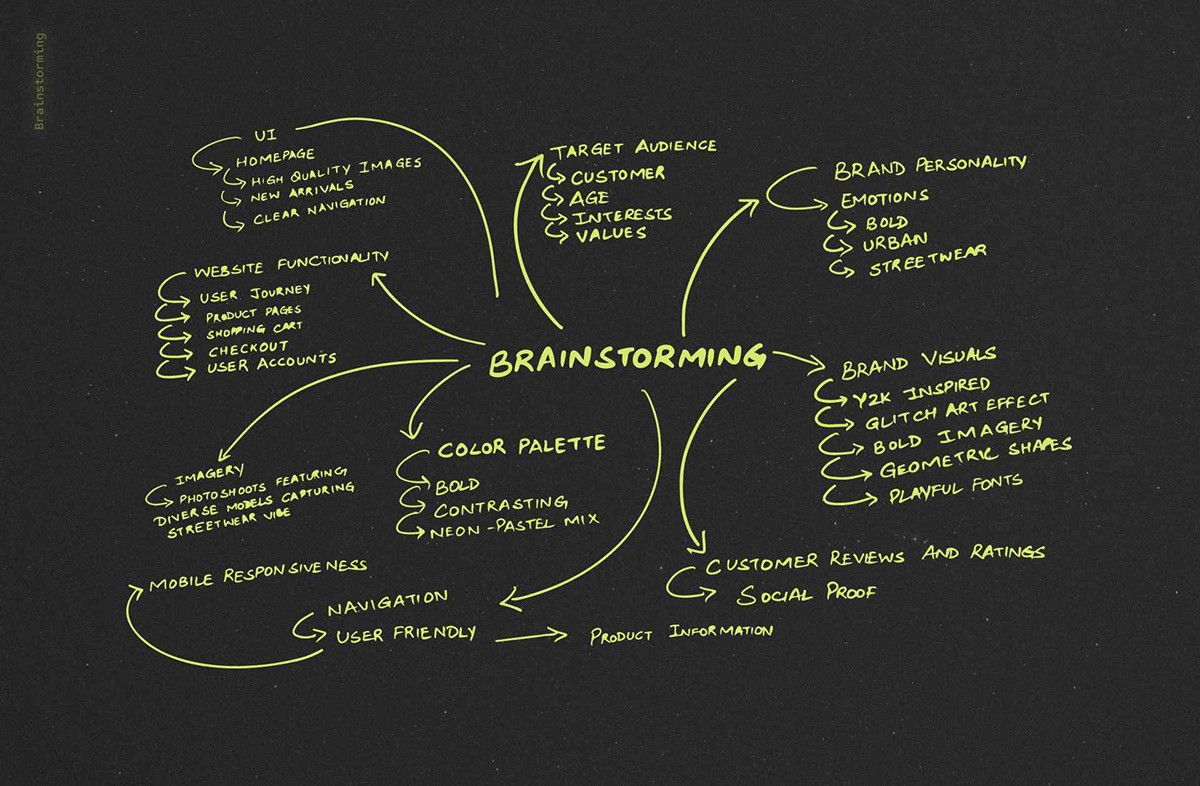 Brainstorming
UI
HOMEPAGE
HIGH QUALITY IMAGES
NEW ARRIVALS
CLEAR NAVIGATION
TARGET AUDIENCE
CUSTOMER
AGE
INTERESTS
VALUES
BRAND PERSONALITY
EMOTIONS
BOLD
URBAN
STREETWEAR
WEBSITE FUNCTIONALITY
USER JOURNEY
PRODUCT PAGES
SHOPPING CART
CHECKOUT
USER ACCOUNTS
BRAINSTORMING
BRAND VISUALS
Y2K INSPIRED
GLITCH ART EFFECT
BOLD IMAGERY
GEOMETRIC SHAPES
PLAYFUL FONTS
IMAGERY
PHOTOSHOOTS FEATURING
DIVERSE MODELS CAPTURING
STREETWEAR VIBE
COLOR PALETTE
BOLD
CONTRASTING
NEON-PASTEL MIX
CUSTOMER REVIEWS AND RATINGS
SOCIAL PROOF
MOBILE RESPONSIVENESS
NAVIGATION
USER FRIENDLY
PRODUCT INFORMATION